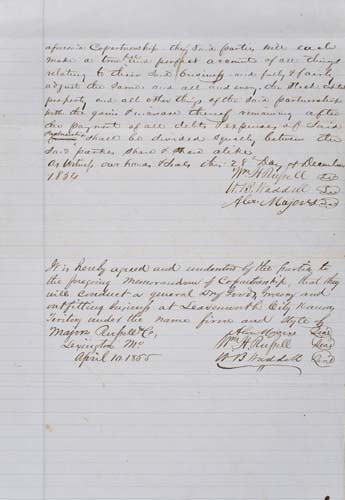 aforesaid Copartnership they said parties will each
make a true and perfect account of all things
relating to their said business and fully & fairly
adjust the same and all and every the Stock
property and all other things of the said partnership
with the gains & increase thereof remaining after
the payment of all debts & expenses of said
Copartnership shall be divided equally between the
said parties share & share alike
As witness our hands & Seals this 28 Day of December
1854
Wm H Russell Seal
W B Waddell Seal
Alex Majors Seal
It is hereby agreed and understood by the parties to
the foregoing Memorandum of Copartnership, that they
will conduct a general Dry Goods Grocery and
outfitting business at Leavenworth City Kansas
Teritory under the name firm and style of
Majors Russell & Co,
Alex Majors Seal
Lexington Mo
Wm H Russell Seal
April 10. 1855
W B Waddell Seal